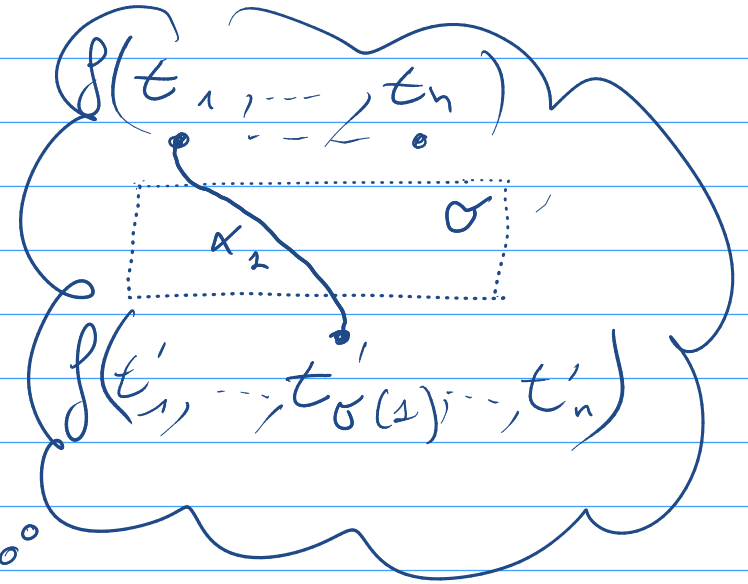 f(t₁, ---, tₙ)
σ
α₁
f(t'₁, ---, t'σ(1), ---, t'ₙ)